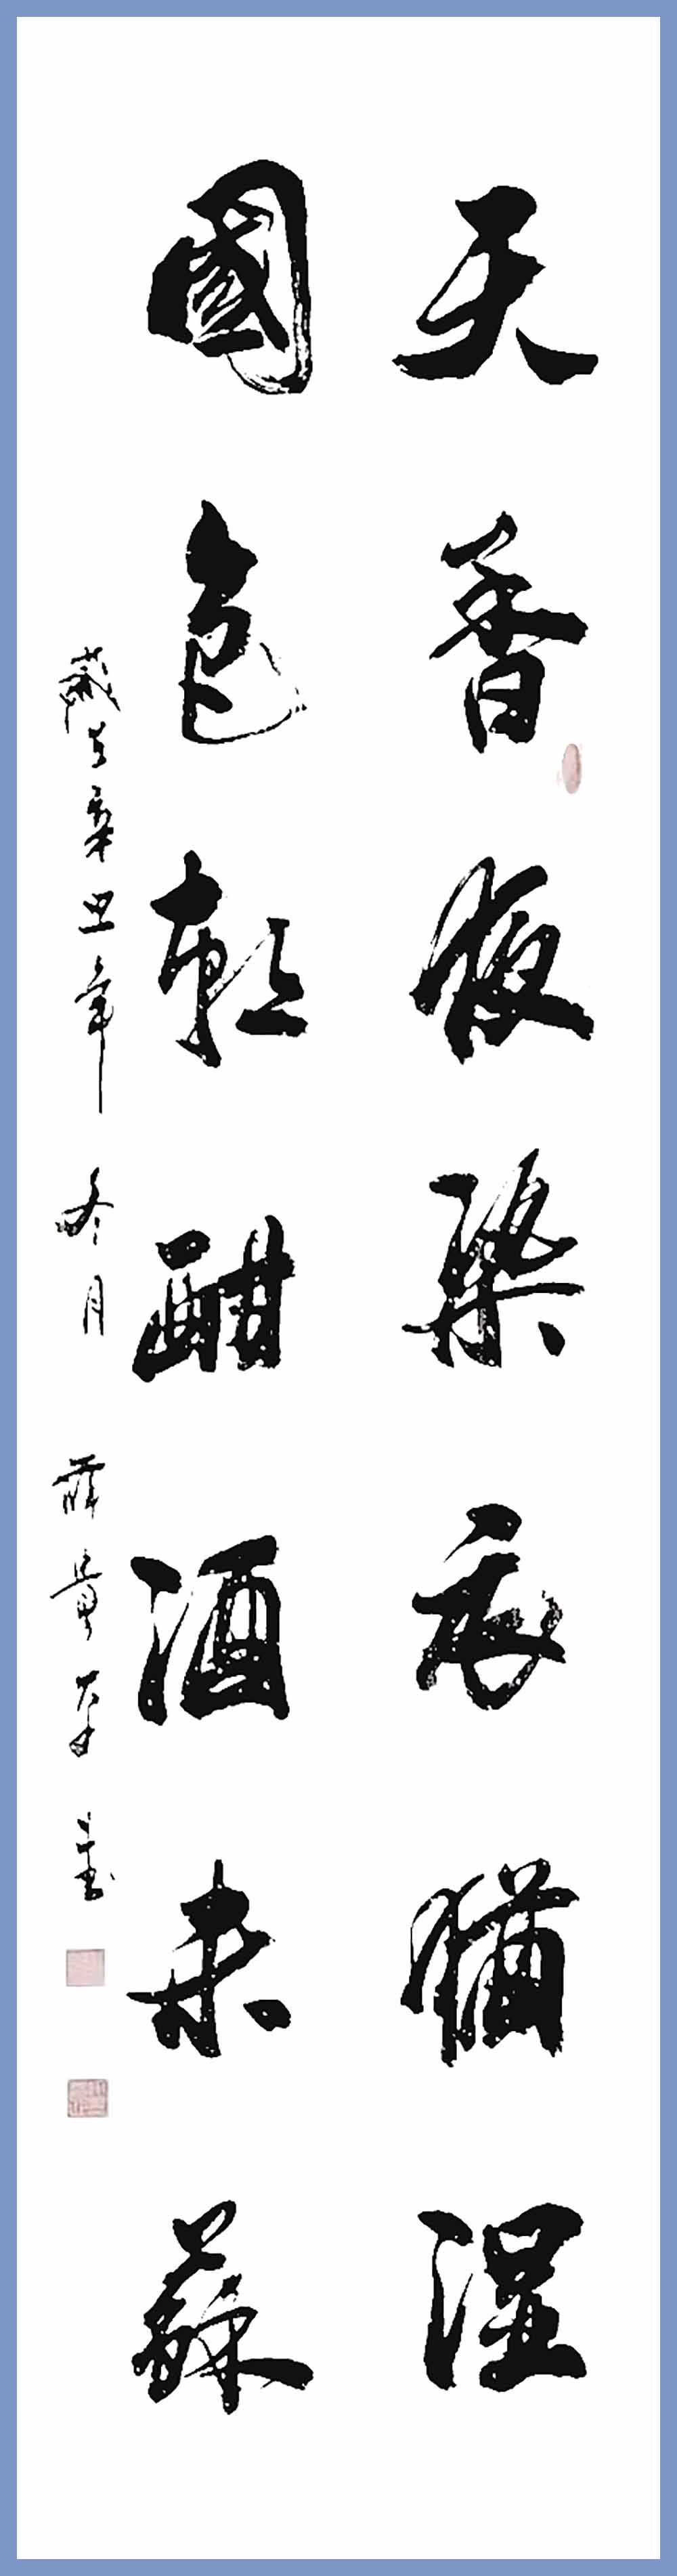 天香夜染衣猶溼
國色朝酣酒未蘇
歲在辛丑年冬月薛貴君書